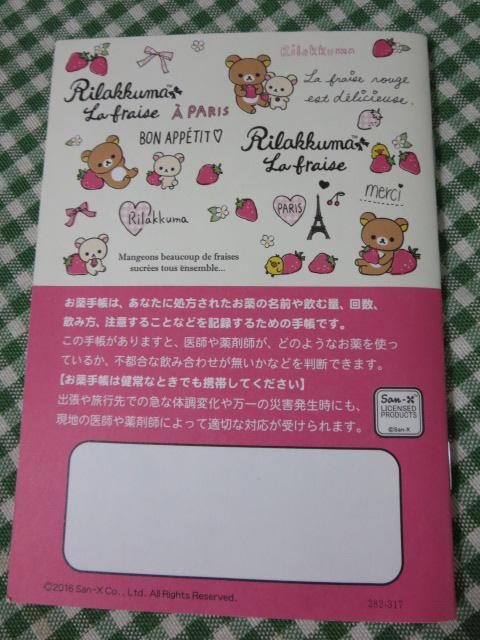 Rilakkuma
Rilakkuma
La fraise À PARIS
La fraise rouge
est délicieuse.
BON APPÉTIT♡
Rilakkuma™
La fraise
merci
Rilakkuma
PARIS
Mangeons beaucoup de fraises
sucrées tous ensemble...
お薬手帳は、あなたに処方されたお薬の名前や飲む量、回数、
飲み方、注意することなどを記録するための手帳です。
この手帳がありますと、医師や薬剤師が、どのようなお薬を使っ
ているか、不都合な飲み合わせが無いかなどを判断できます。
【お薬手帳は健常なときでも携帯してください】
出張や旅行先での急な体調変化や万一の災害発生時にも、
現地の医師や薬剤師によって適切な対応が受けられます。
San-X
LICENSED
PRODUCTS
©San-X
©2016 San-X Co., Ltd. All Rights Reserved.
282-317